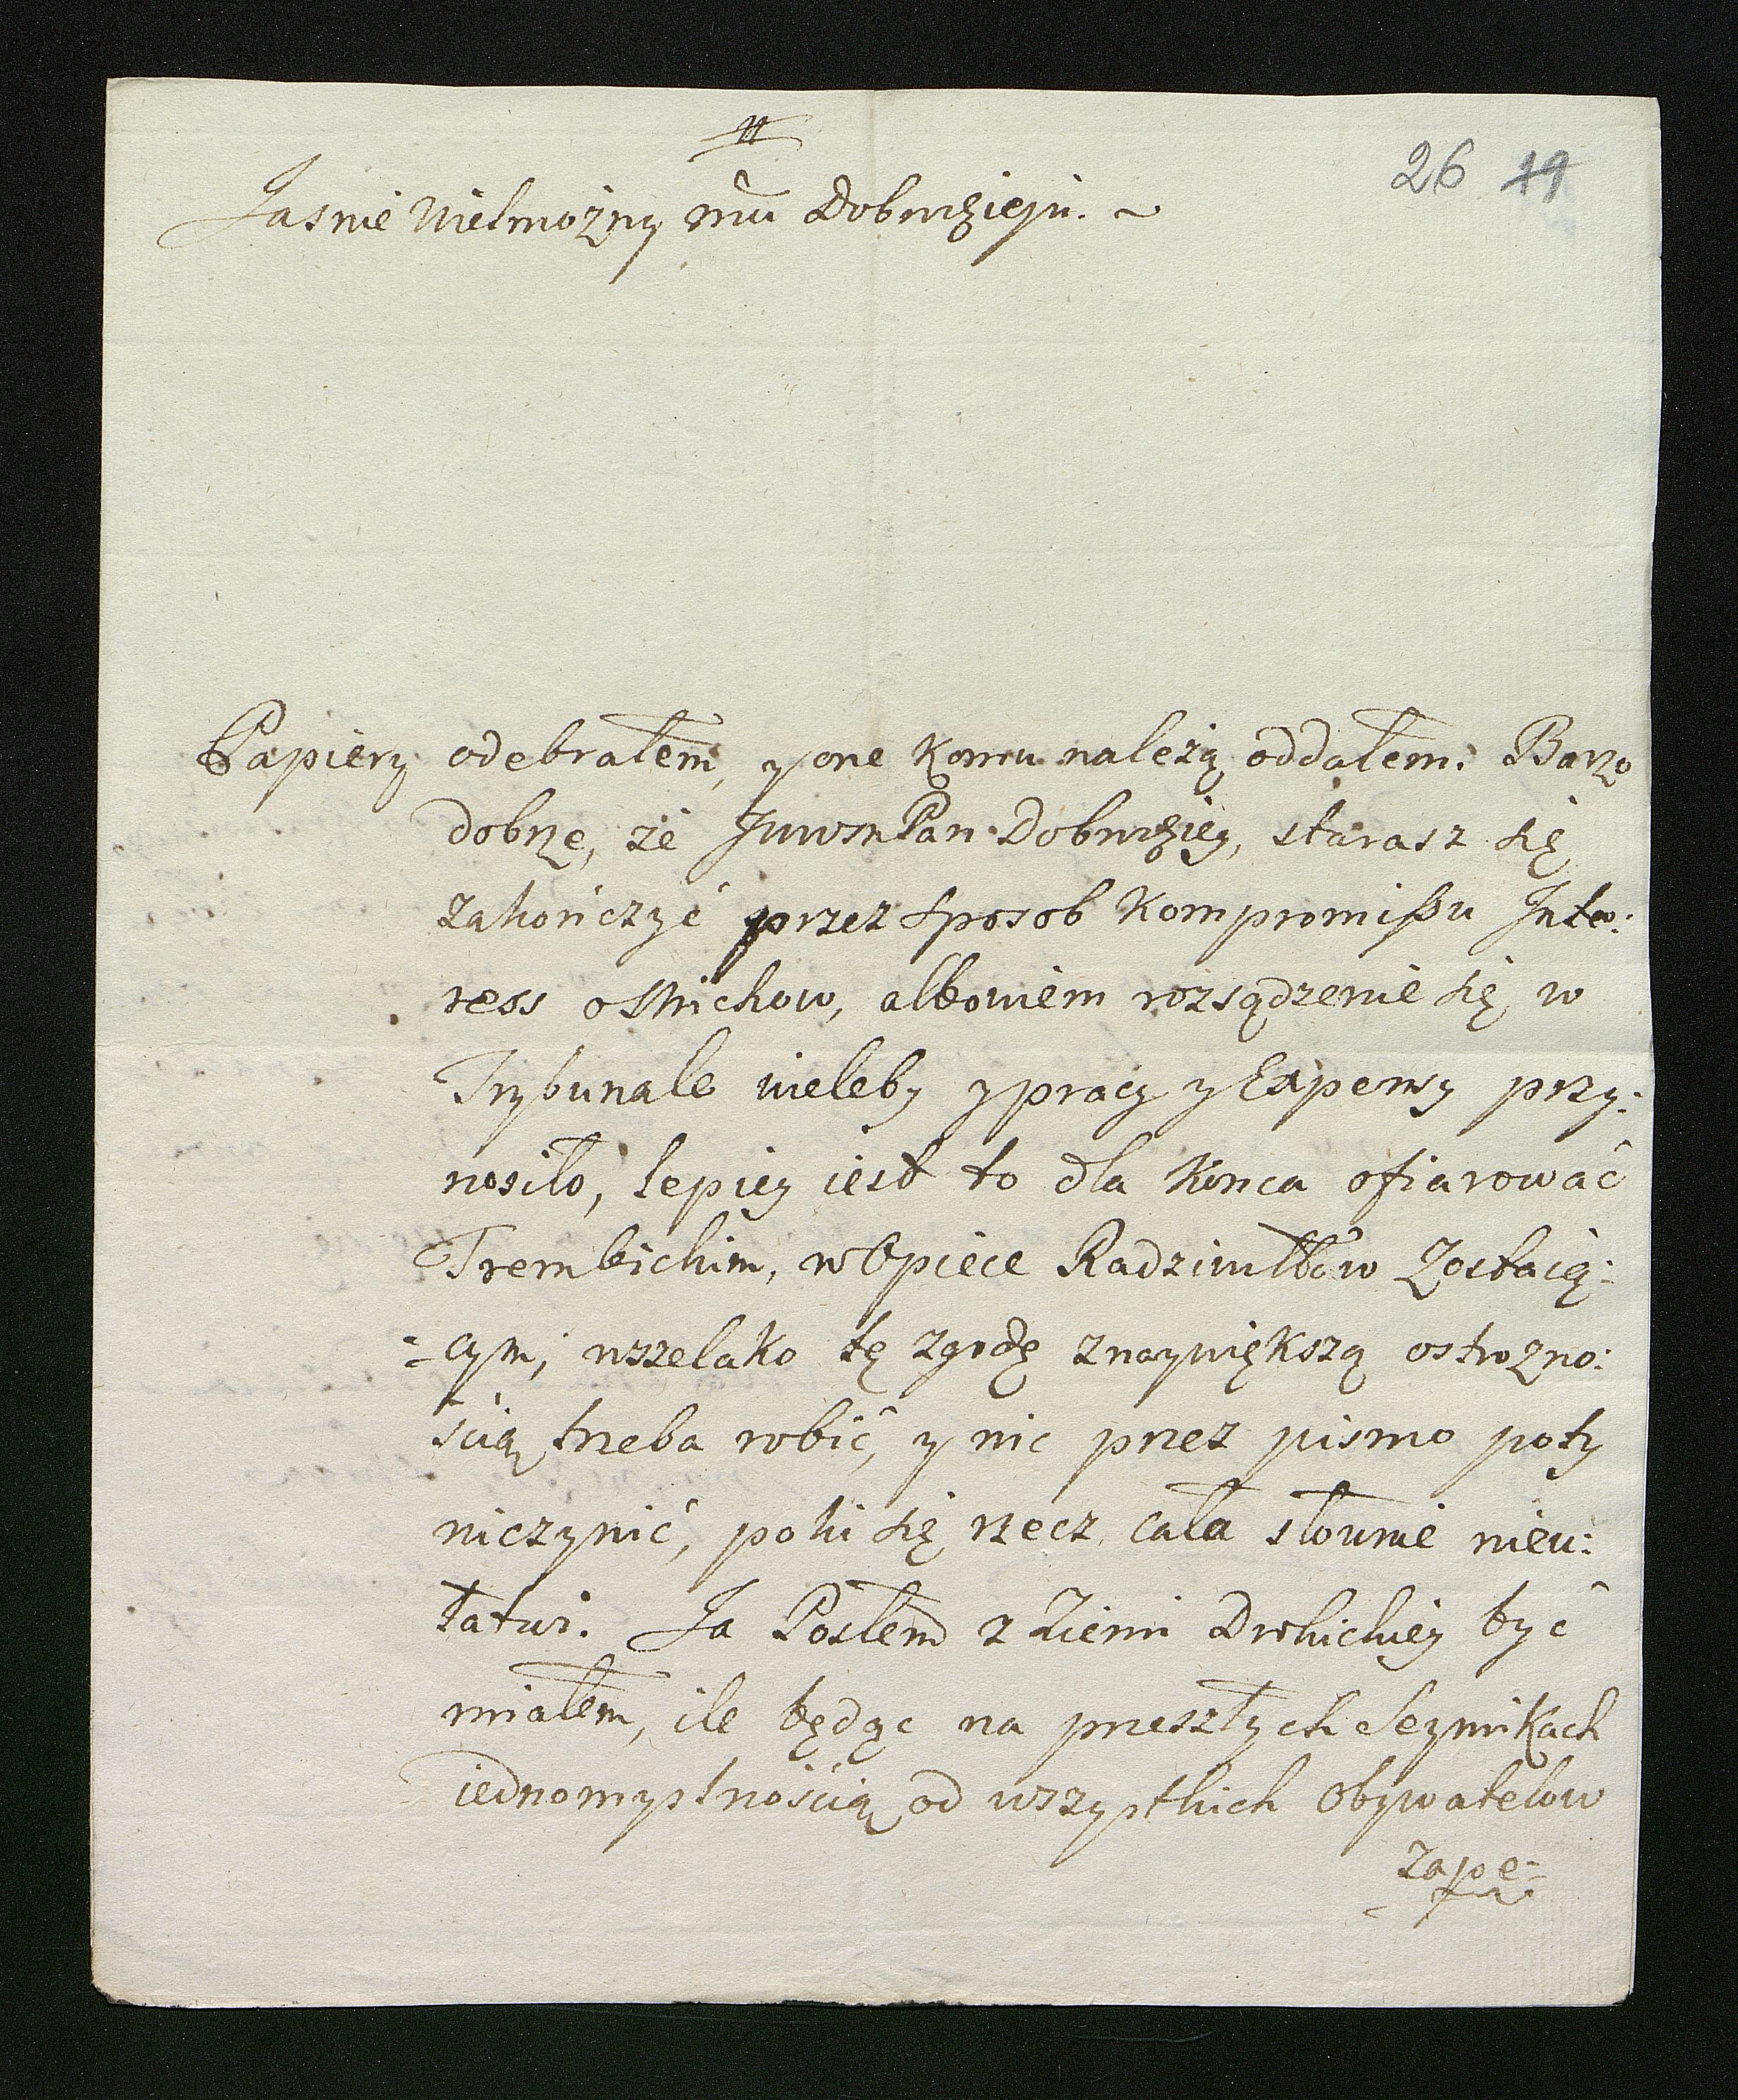 26 19
Jasnie Wielmożny mu Dobrodzieju. ~
Papiery odebrałem, y one komu należą oddałem. Barzo
dobrze, że JWWMPan Dobrodziey, starasz się
zakończyć przez sposob Kompromissu Inte:
ress oStrichow, albowiem rozsądzenie się w
Trybunale wieleby y pracy y Expensy przy:
nosiło, lepiey iest to dla Konca ofiarować
Trembickim, w Opiece Radziwiłłow Zostaią:
=cym, wszelako tę zgodę z naywiększą ostrozno:
ścią trzeba robić, y nic przez pismo poty
nieczynić, poki się rzecz cała słownie nieu:
łatwi. Ja Posłem z Ziemi Drohickiey być
miałem, ile będąc na przeszłych Seymikach
iednomyslnością od wszystkich Obywatelow
zape=